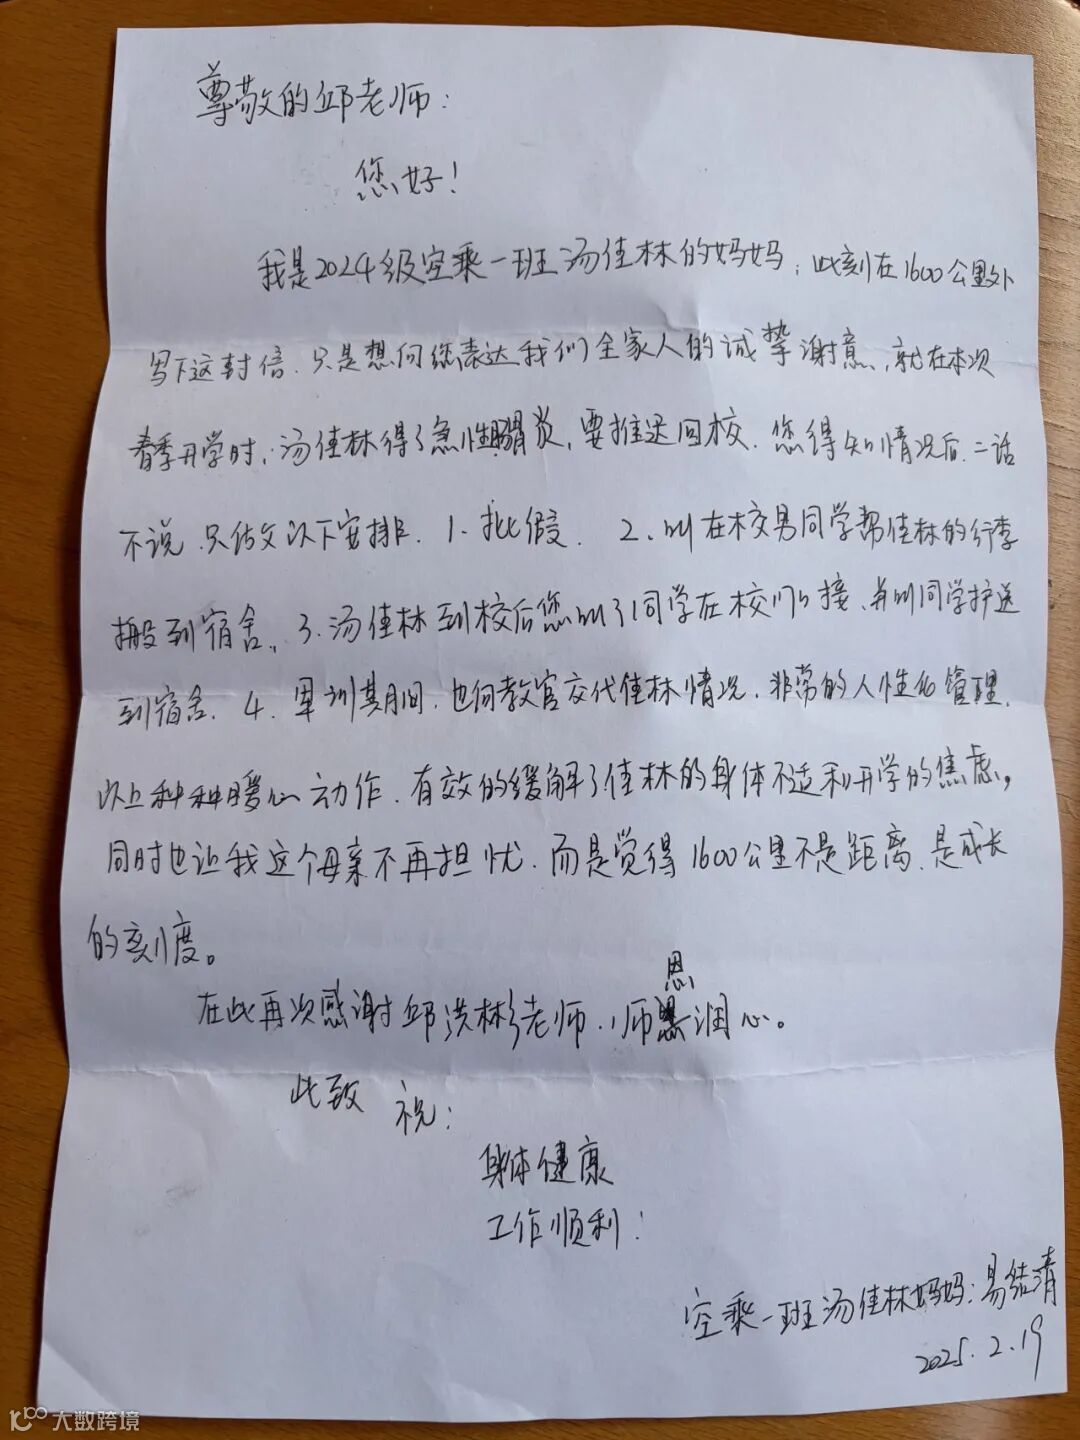 尊敬的邱老师：
您好！
我是2024级空乘一班汤佳林的妈妈，此刻在1600公里外
写下这封信、只是想向您表达我们全家人的诚挚谢意，就在本次
春季开学时，汤佳林得了急性肠胃炎，要推迟回校、您得知情况后、二话
不说、只做文以下安排、1、批假、 2、叫在校男同学帮佳林的行李
搬到宿舍、3、汤佳林到校后您叫了1同学在校门口接、并叫同学护送
到宿舍、4、军训其月间、也向教官交代佳林情况、非常的人性化管理、
以上种种暖心动作、有效的缓解了佳林的身体不适和开学的焦虑，
同时也让我这个母亲不再担忧、而是觉得1600公里不是距离、是成长
的刻度。
在此再次感谢邱洪彬老师、师恩润心。
此致 祝：
身体健康
工作顺利！
空乘一班汤佳林妈妈：易结清
2025.2.19
大数跨境